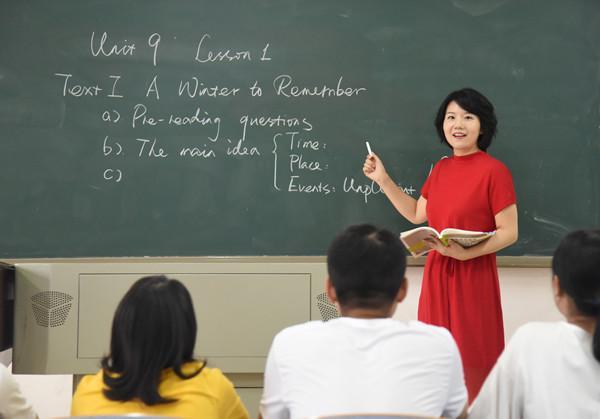 Unit 9 Lesson 1
Text I A Winter to Remember
a) Pre-reading questions
b). The main idea { Time:
Place:
Events:
c)